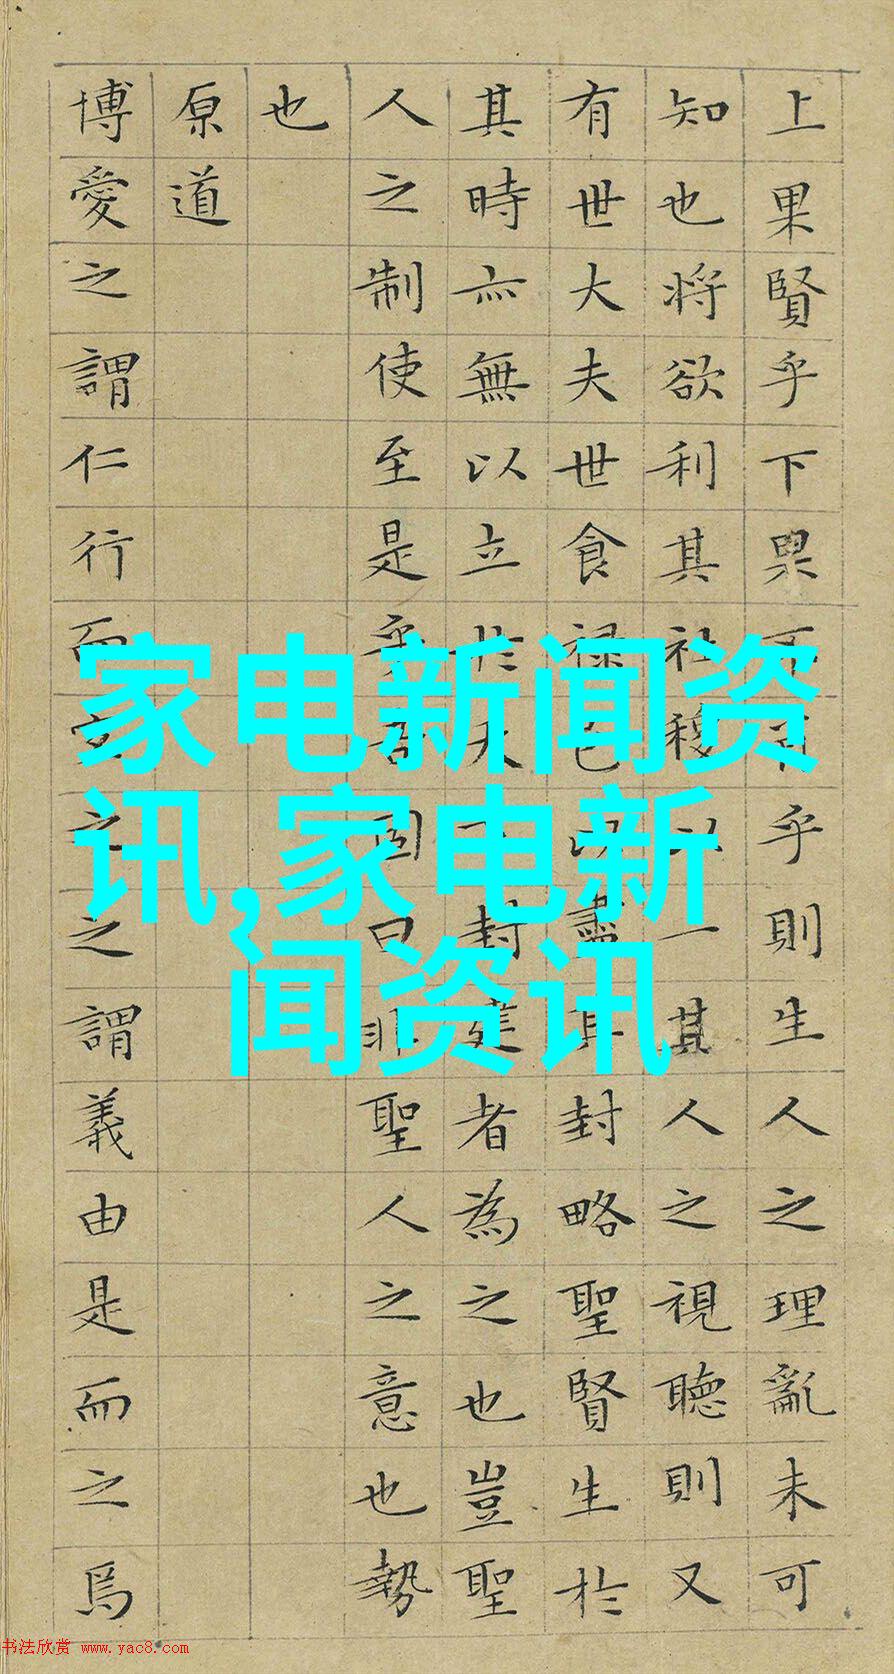 上果賢乎下果不肖乎則生人之理亂未可
知也將欲利其社稷以一其人之視聽則又
有世大夫世食禄邑以盡其封略聖賢生於
其時亦無以立於天封建者為之也豈聖
人之制使至是乎吾固曰非聖人之意也勢
也
原道
博愛之謂仁行而宜之之謂義由是而之焉
家电新闻资
讯,家电新
闻资讯
书法欣赏 www.yac8.com